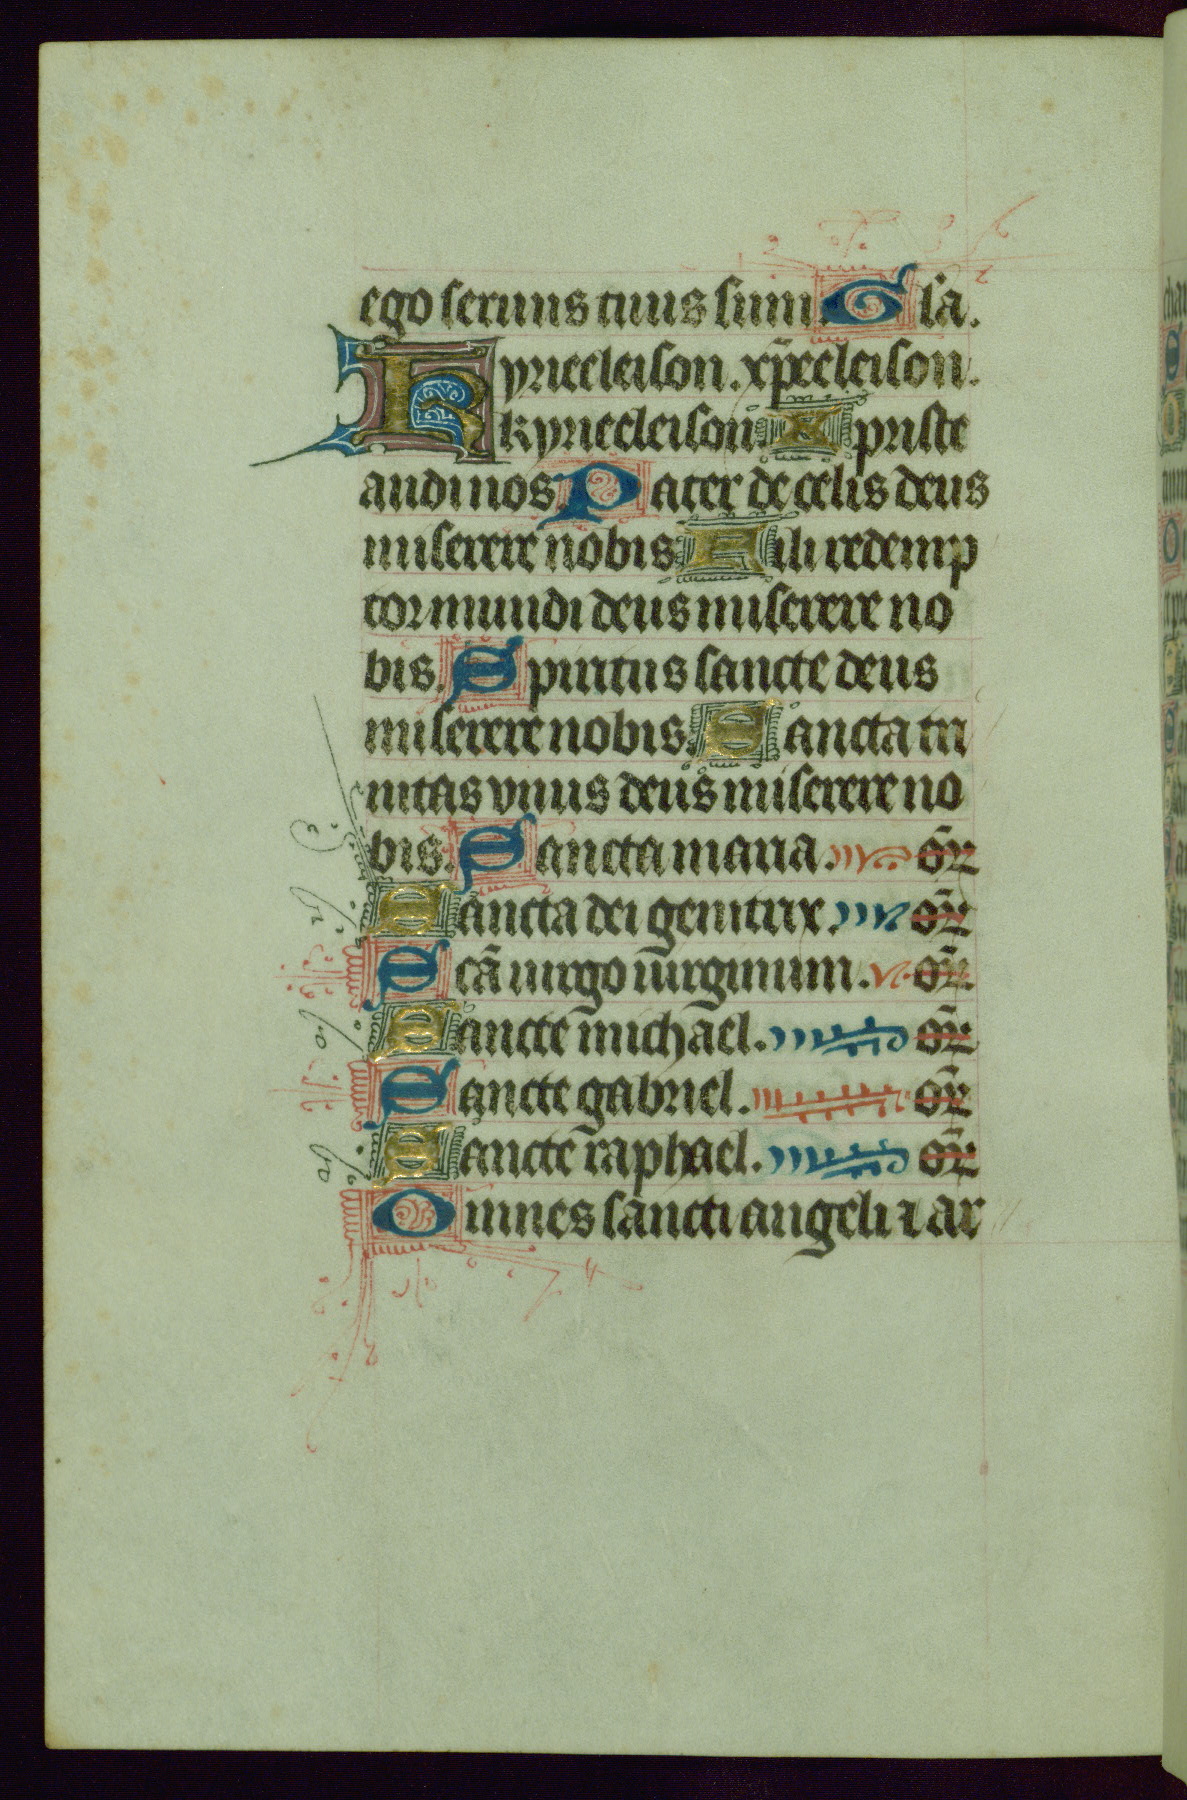 ego seruus tuus sum. Gła.
Kyrieeleison. xp̄eeleison.
kyrieeleison. Xpriste
audi nos. Pater de celis deus
miserere nobis. Fili redemp
tor mundi deus miserere no
bis. Spiritus sancte deus
miserere nobis. Sancta tri
nitas vnus deus miserere no
bis. Sancta maria. or̄
Sancta dei genitrix. or̄
Scā uirgo uirginum. or̄
Sancte michael. or̄
Sancte gabriel. or̄
Sancte raphael. or̄
Omnes sancti angeli ⁊ ar